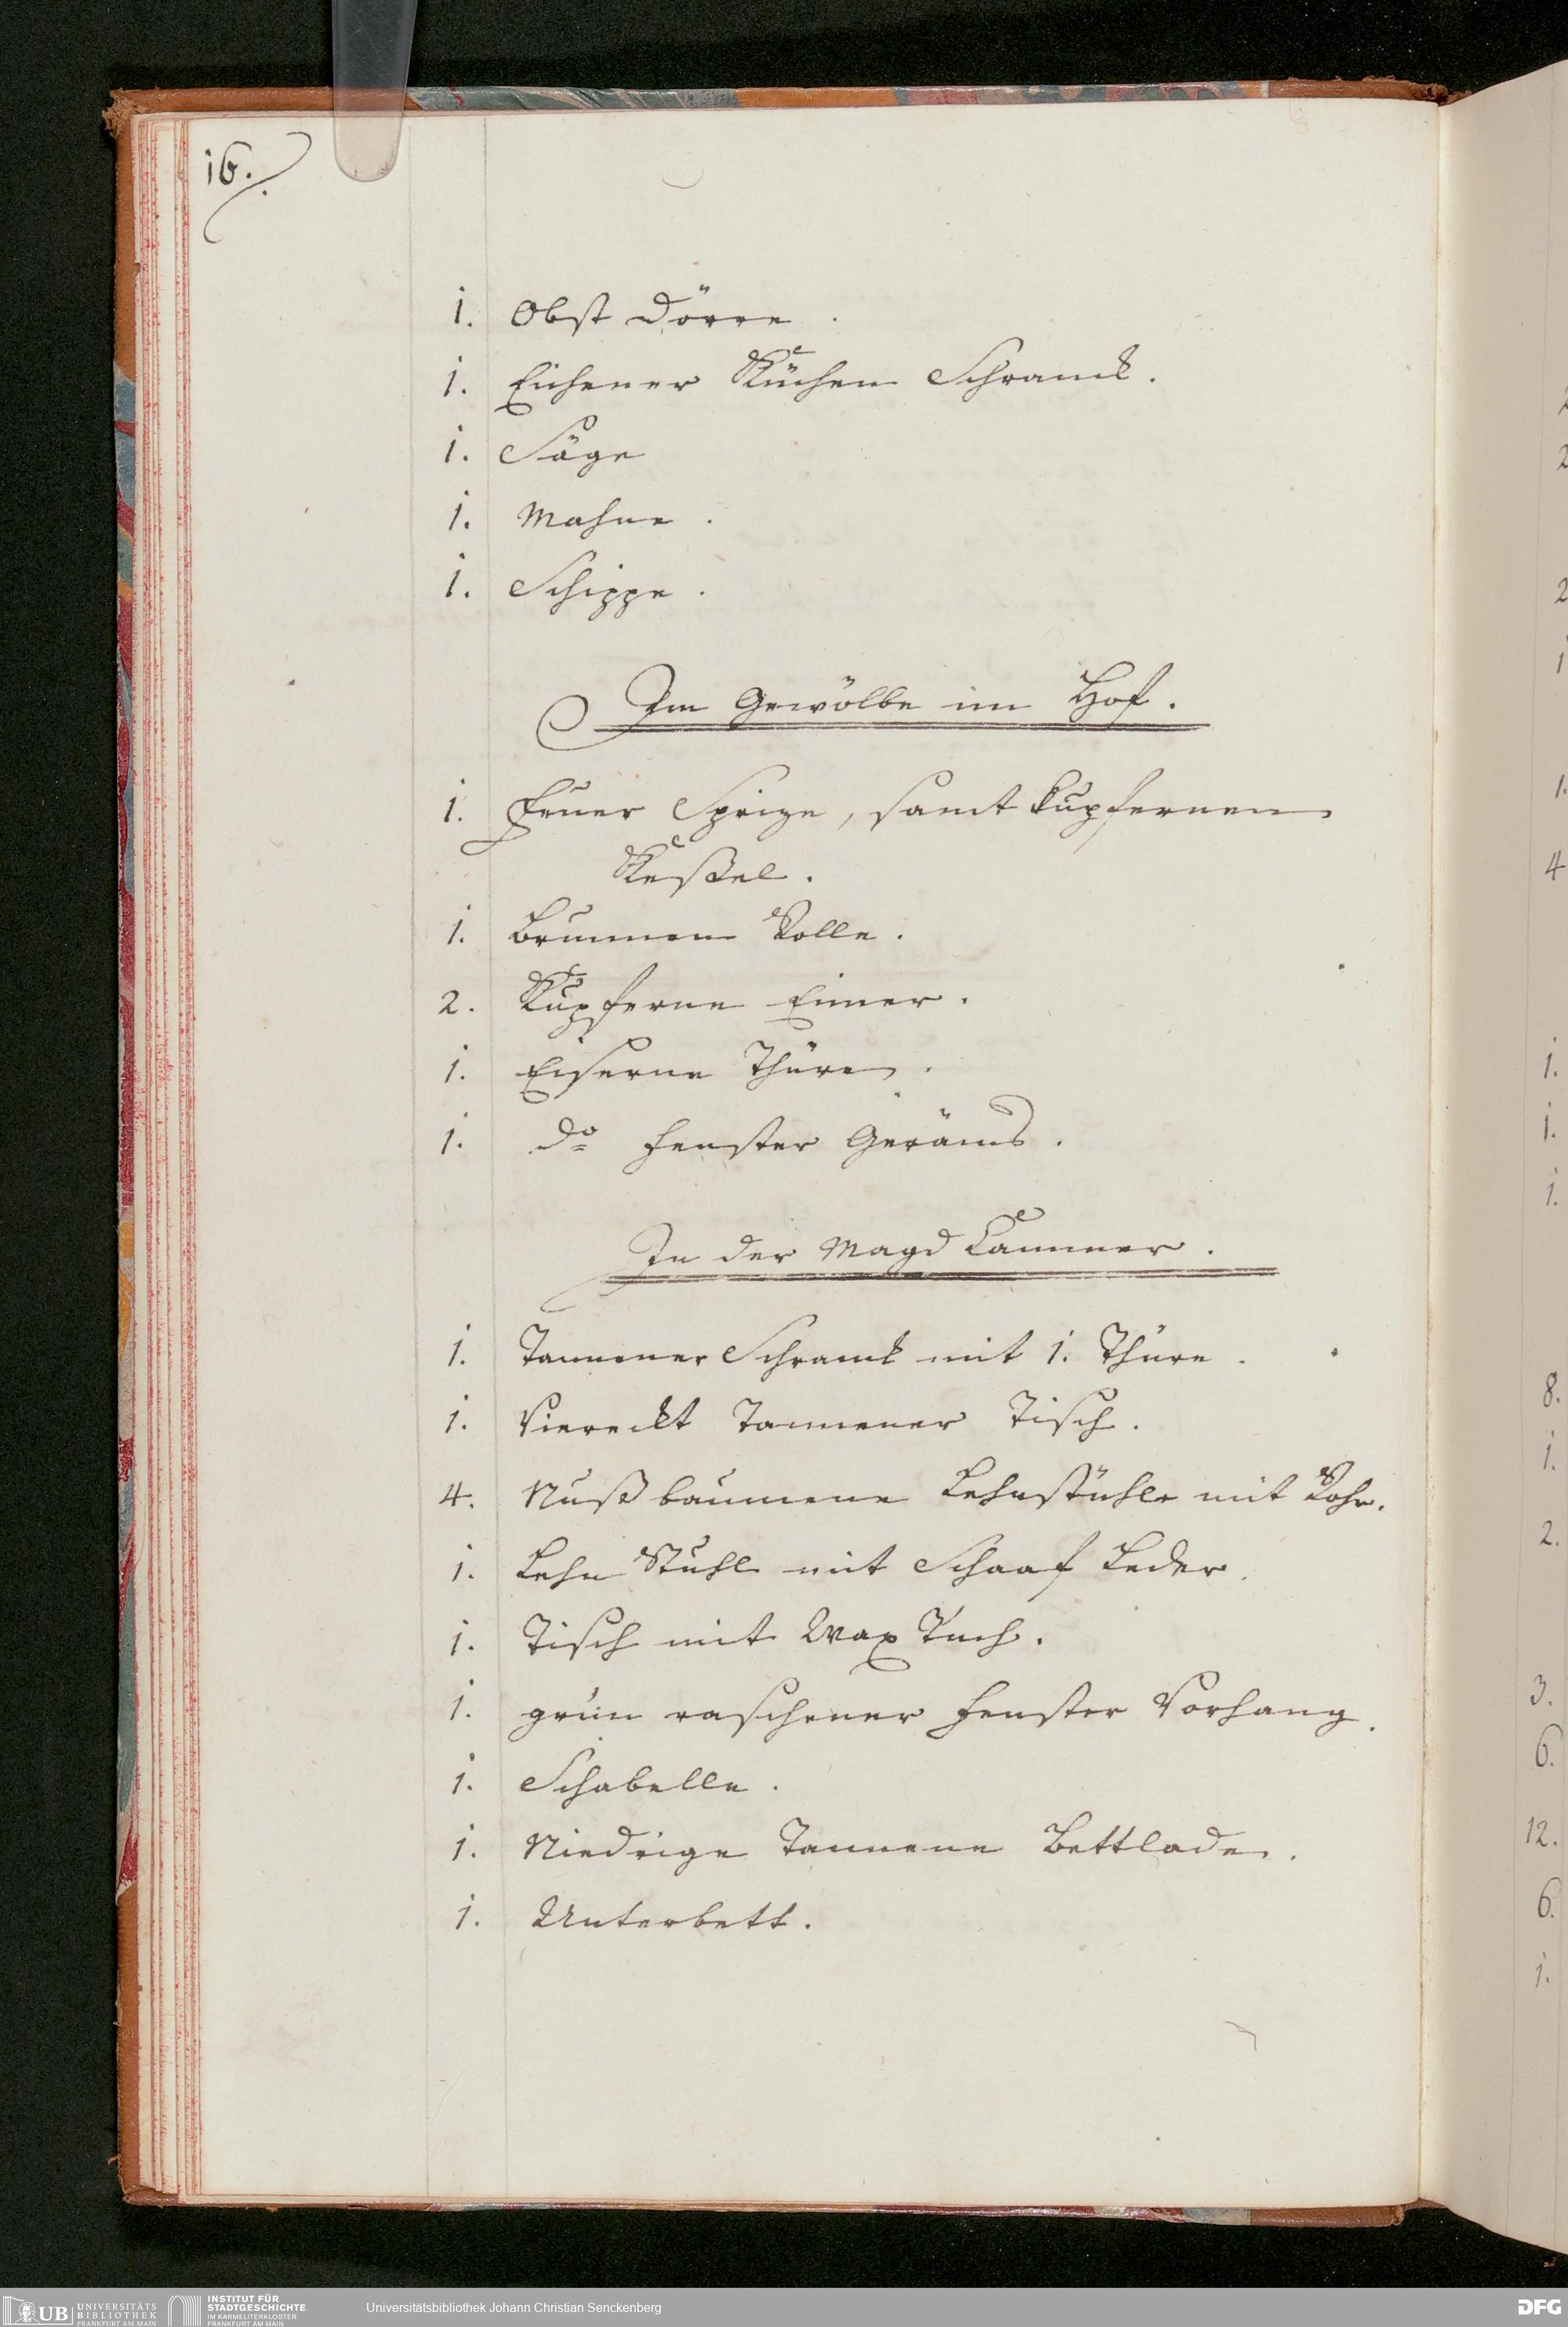 16.
1. Obst Dörre.
1. Eichener Küchen Schranck.
1. Säge
1. Mahne.
1. Schippe.
Im Gewölbe im Hof.
1. Feuer Sprize, samt kupfernen
Keßel.
1. Brunnen Rolle.
2. Kupferne Eimer.
1. Eiserne Thüre.
1. do Fenster Geräms.
In der Magd Cammer.
1. Tannener Schranck mit 1. Thüre.
1. Viereckt Tannener Tisch.
4. Nußbaumene Lehnstühle mit Rohr.
1. Lehn Stuhl mit Schaaf Leder.
1. Tisch mit Wax Tuch.
1. grün raschener Fenster Vorhang.
1. Schabelle.
1. Niedrige Tannene Bettlade.
1. Unterbett.
2
2
2
1
1.
4
1.
1.
1.
8.
1.
2.
3.
6.
12.
6.
1.
UB UNIVERSITÄTS BIBLIOTHEK FRANKFURT AM MAIN
INSTITUT FÜR STADTGESCHICHTE IM KARMELITERKLOSTER FRANKFURT AM MAIN
Universitätsbibliothek Johann Christian Senckenberg
DFG